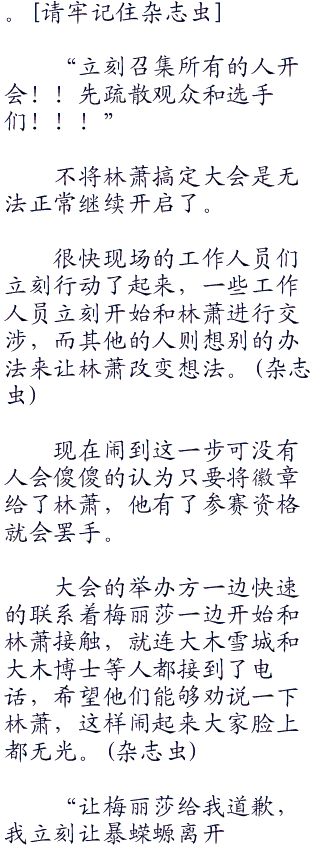 。[请牢记住杂志虫]
“立刻召集所有的人开
会！！先疏散观众和选手
们！！！”
不将林萧搞定大会是无
法正常继续开启了。
很快现场的工作人员们
立刻行动了起来，一些工作
人员立刻开始和林萧进行交
涉，而其他的人则想别的办
法来让林萧改变想法。(杂志
虫)
现在闹到这一步可没有
人会傻傻的认为只要将徽章
给了林萧，他有了参赛资格
就会罢手。
大会的举办方一边快速
的联系着梅丽莎一边开始和
林萧接触，就连大木雪城和
大木博士等人都接到了电
话，希望他们能够劝说一下
林萧，这样闹起来大家脸上
都无光。(杂志虫)
“让梅丽莎给我道歉，
我立刻让暴蝾螈离开